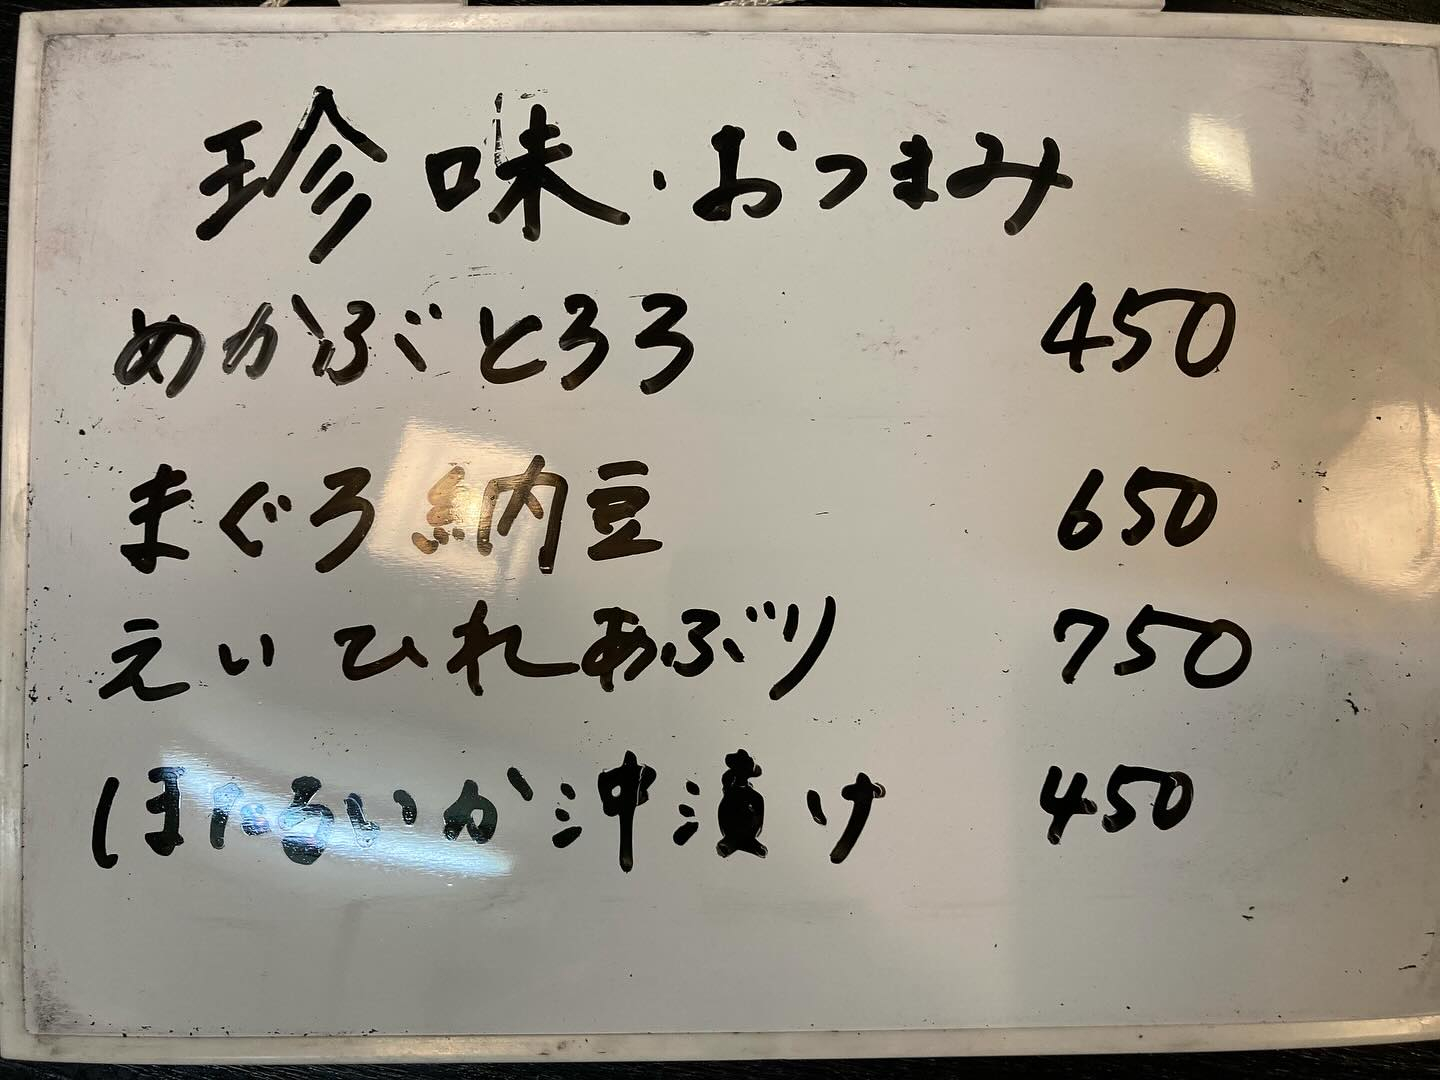 珍味・おつまみ
めかぶとろろ 450
まぐろ納豆 650
えいひれあぶり 750
ほたるいか沖漬け 450